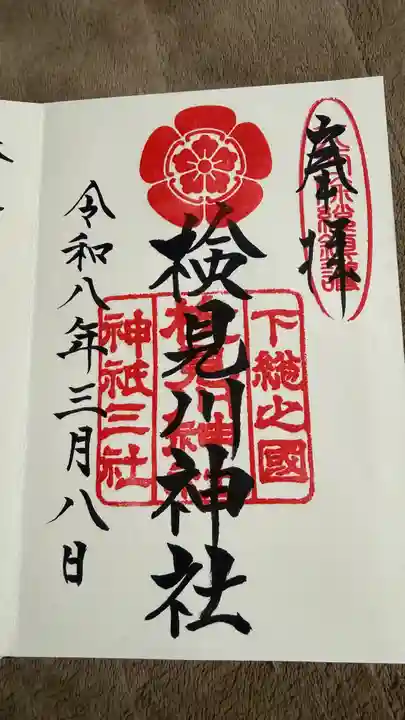 奉拝
検見川神社
下総之國
神祇三社
令和八年三月八日